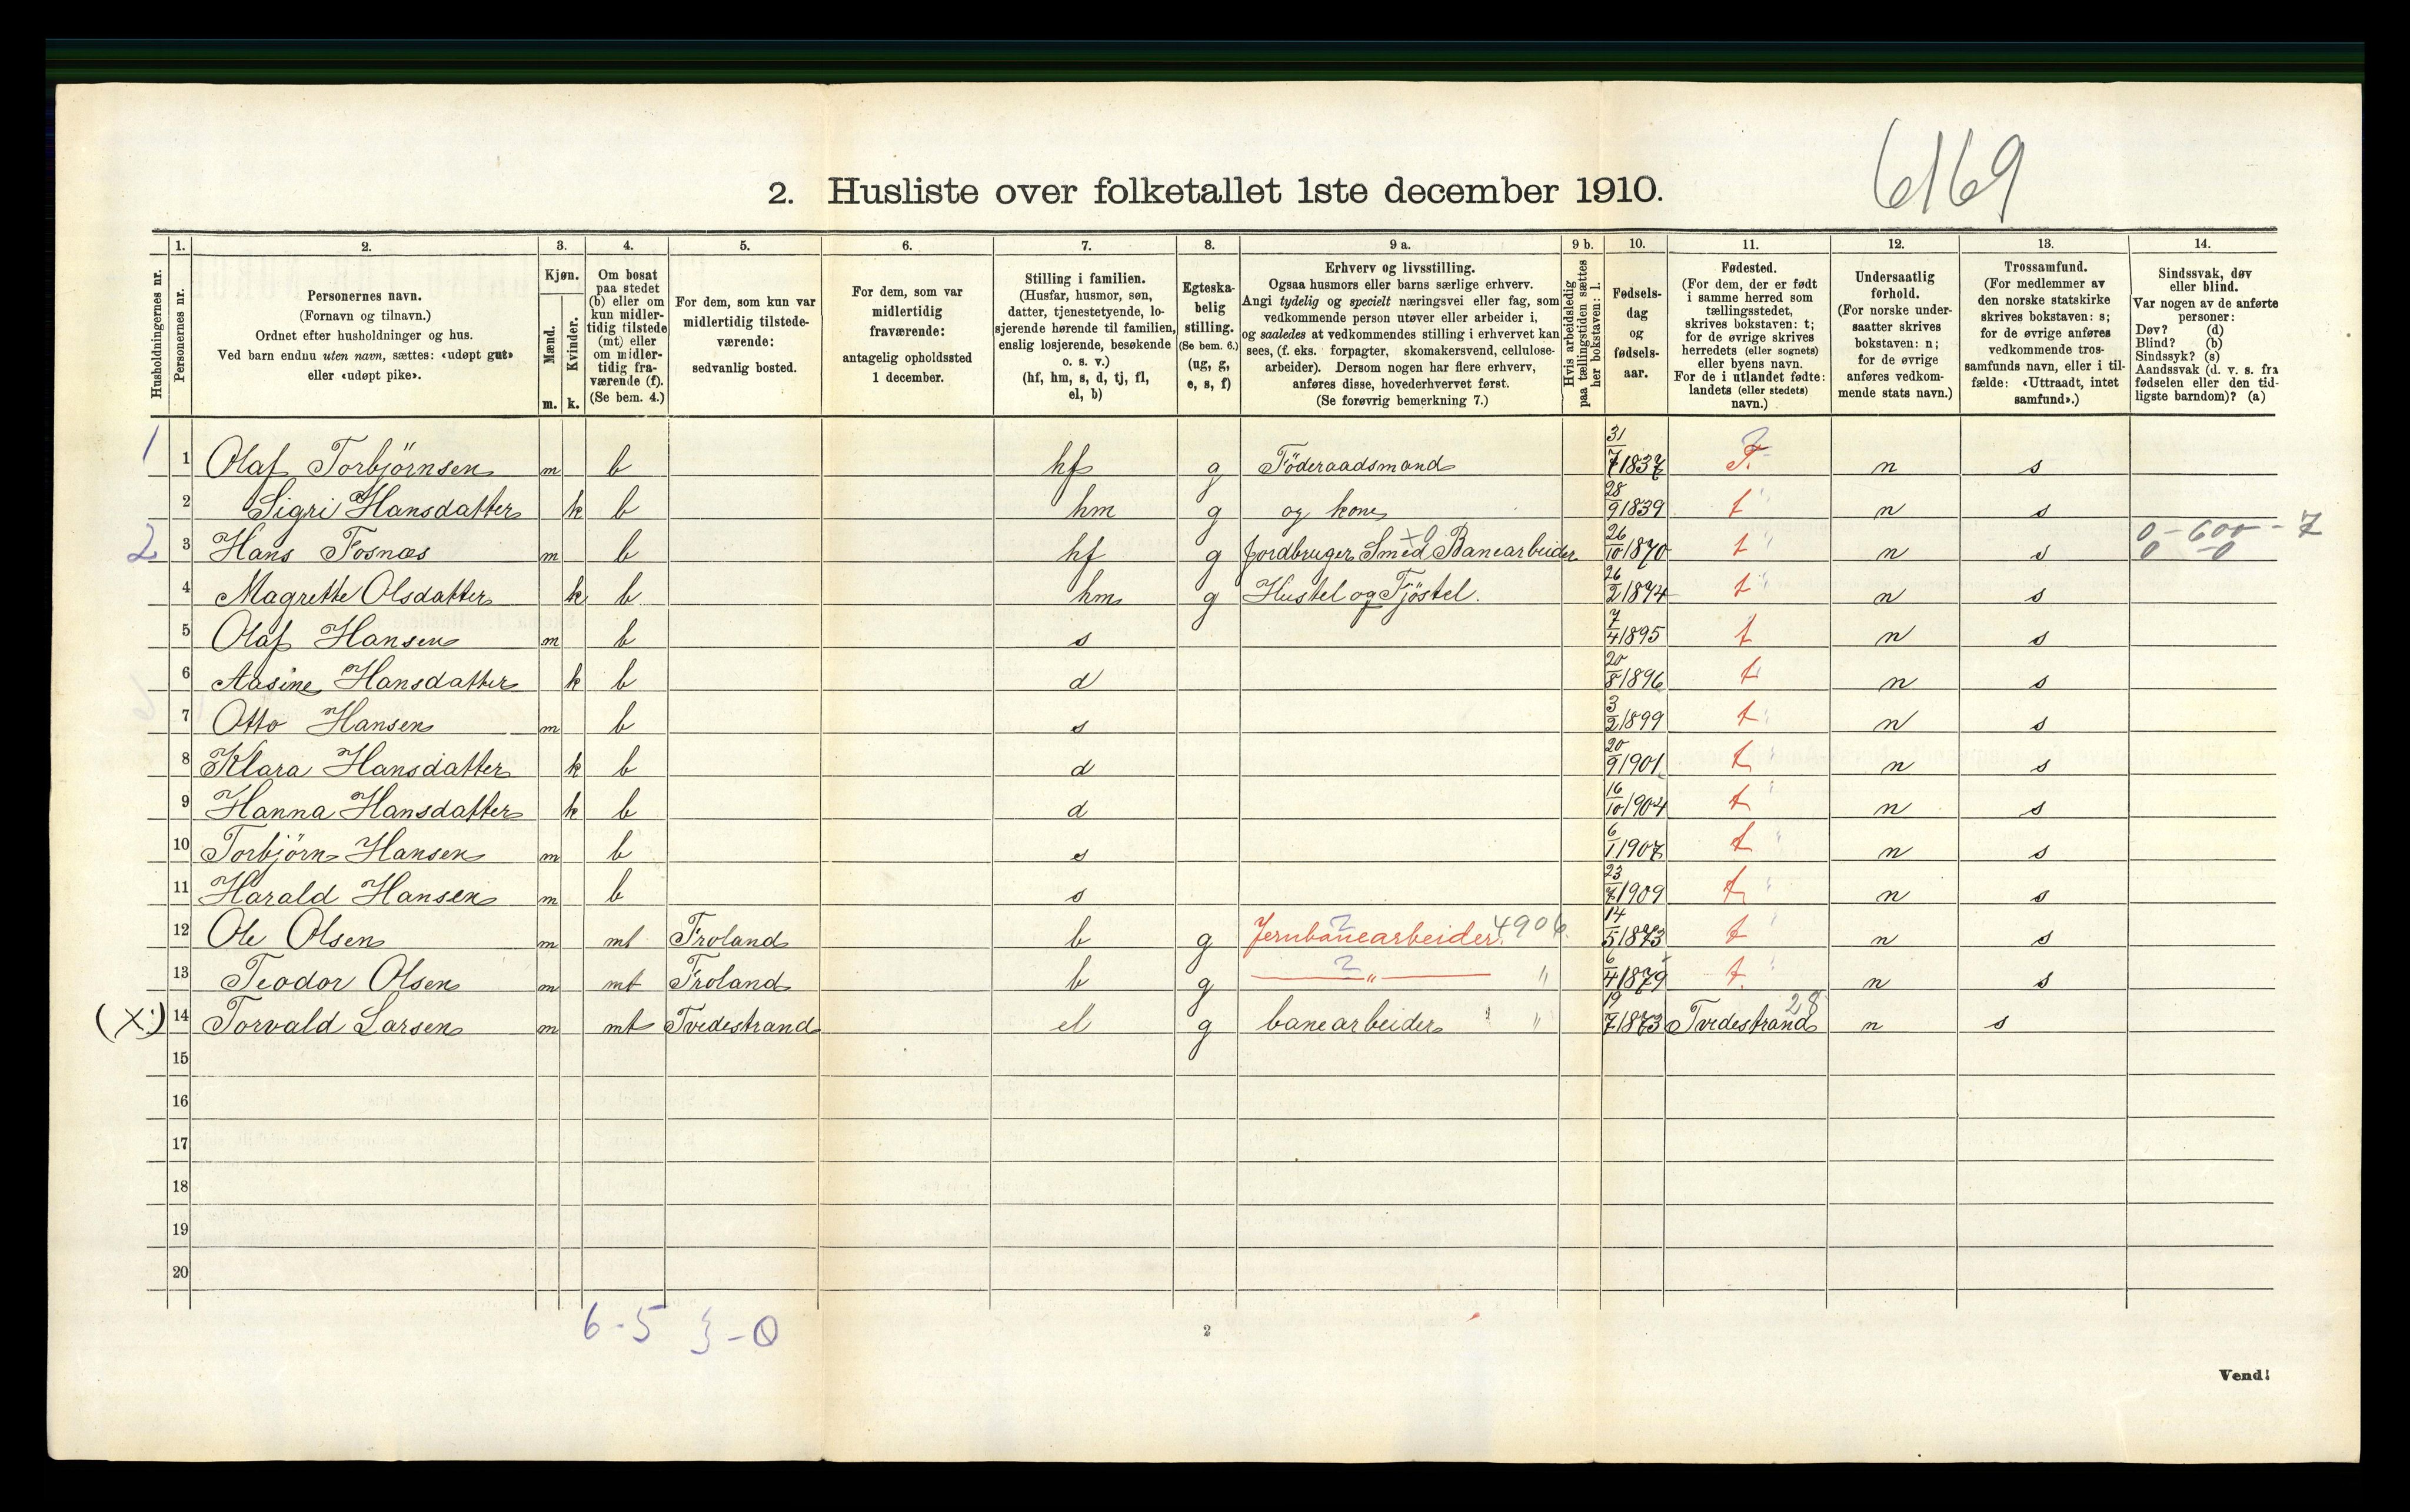 6169
2. Husliste over folketallet 1ste december 1910.
1. 2. 3. 4. 5. 6. 7. 8. 9 a. 9 b. 10. 11. 12. 13. 14.
Husholdningernes nr.
Personernes nr.
Personernes navn.
(Fornavn og tilnavn.)
Ordnet efter husholdninger og hus.
Ved barn endnu uten navn, sættes: «udøpt gut»
eller «udøpt pike».
Kjøn.
Mænd.
Kvinder.
m. k.
Om bosat
paa stedet
(b) eller om
kun midler-
tidig tilstede
(mt) eller
om midler-
tidig fra-
værende (f).
(Se bem. 4.)
For dem, som kun var
midlertidig tilstede-
værende:
sedvanlig bosted.
For dem, som var
midlertidig
fraværende:
antagelig opholdssted
1 december.
Stilling i familien.
(Husfar, husmor, søn,
datter, tjenestetyende, lo-
sjerende hørende til familien,
enslig losjerende, besøkende
o. s. v.)
(hf, hm, s, d, tj, fl,
el, b)
Egteska-
belig
stilling.
(Se bem. 6.)
(ug, g,
e, s, f)
Erhverv og livsstilling.
Ogsaa husmors eller barns særlige erhverv.
Angi tydelig og specielt næringsvei eller fag, som
vedkommende person utøver eller arbeider i,
og saaledes at vedkommendes stilling i erhvervet kan
sees, (f. eks. forpagter, skomakersvend, cellulose-
arbeider). Dersom nogen har flere erhverv,
anføres disse, hovederhvervet først.
(Se forøvrig bemerkning 7.)
Hvis arbeidsledig
paa tællingstiden sættes
her bokstaven: l.
Fødsels-
dag
og
fødsels-
aar.
Fødested.
(For dem, der er født
i samme herred som
tællingsstedet,
skrives bokstaven: t;
for de øvrige skrives
herredets (eller sognets)
eller byens navn.
For de i utlandet fødte:
landets (eller stedets)
navn.)
Undersaatlig
forhold.
(For norske under-
saatter skrives
bokstaven: n;
for de øvrige
anføres vedkom-
mende stats navn.)
Trossamfund.
(For medlemmer av
den norske statskirke
skrives bokstaven: s;
for de øvrige anføres
vedkommende tros-
samfunds navn, eller i til-
fælde: «Uttraadt, intet
samfund».)
Sindssvak, døv
eller blind.
Var nogen av de anførte
personer:
Døv? (d)
Blind? (b)
Sindssyk? (s)
Aandssvak (d. v. s. fra
fødselen eller den tid-
ligste barndom)? (a)
1 1 Olaf Torbjörnsen m b hf g Föderaadsmand 31/7 1837 T. n s
2 Sigri Hansdatter k b hm g og kone 28/9 1839 t n s
2 3 Hans Fosnæs m b hf g Jordbruger Smed Banearbeider 26/10 1870 t n s 0-600-7
0 -0
4 Magrette Olsdatter k b hm g Hustel og Fjöstel. 26/2 1874 t n s
5 Olaf Hansen m b s 7/4 1895 t n s
6 Aasine Hansdatter k b d 20/8 1896 t n s
7 Otto Hansen m b s 3/2 1899 t n s
8 Klara Hansdatter k b d 20/9 1901 t n s
9 Hanna Hansdatter k b d 16/10 1904 t n s
10 Torbjörn Hansen m b s 6/1 1907 t n s
11 Harald Hansen m b s 23/7 1909 t n s
12 Ole Olsen m mt Froland b g Jernbanearbeider. 4906. 14/5 1873 t n s
13 Teodor Olsen m mt Froland b g — " — " 6/4 1879 t. n s
(X:) 14 Torvald Larsen m mt Tvedestrand el g banearbeider " 19/7 1873 Tvedestrand 28 n s
15
16
17
18
19
20
6-5 } -0
2
Vend!